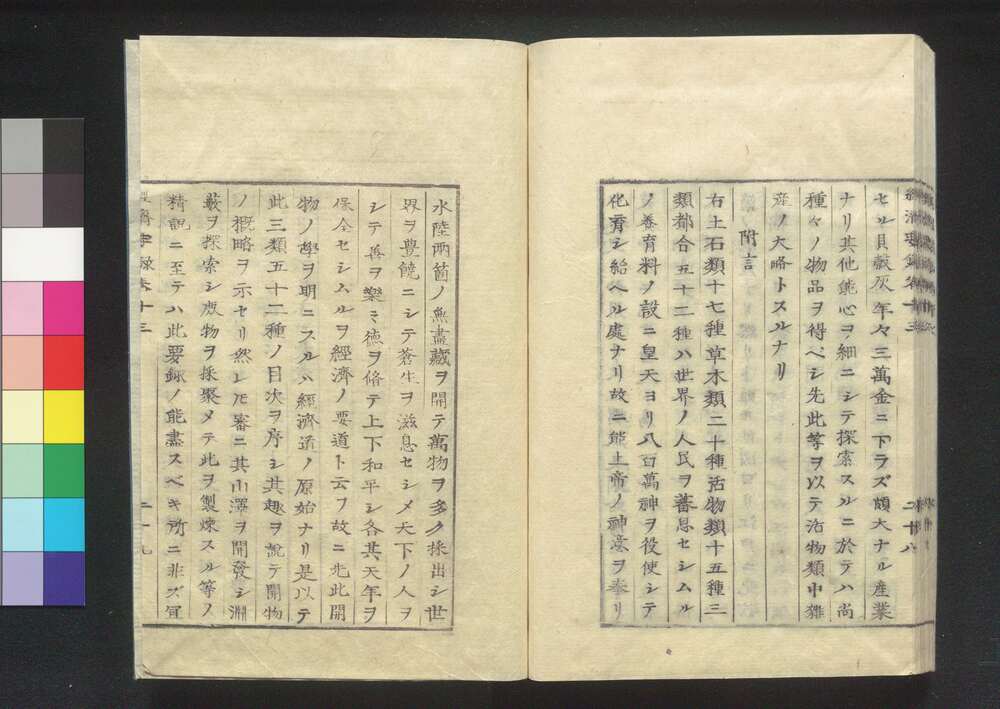 セル貝殻灰年々三萬金ニ下ラズ頗大ナル産業
ナリ其他能心ヲ細ニシテ探索スルニ於テハ尚
種々ノ物品ヲ得ベシ先此等ヲ以テ活物類中雜
産ノ大略トスルナリ
附言
右土石類十七種草木類二十種活物類十五種三
類都合五十二種ハ世界ノ人民ヲ蕃息セシムル
ノ養育料ノ設ニ皇天ヨリ八百萬神ヲ役使シテ
化育シ給ヘル處ナリ故ニ能上帝ノ神意ヲ奉リ
二十八
水陸兩箇ノ無盡藏ヲ開テ萬物ヲ多ク採出シ世
界ヲ豊饒ニシテ蒼生ヲ滋息セシメ天下ノ人ヲ
シテ善ヲ樂ミ德ヲ脩テ上下和平シ各其天年ヲ
保全セシムルヲ經濟ノ要道ト云フ故ニ先此開
物ノ學ヲ明ニスルハ經濟道ノ原始ナリ是以テ
此三類五十二種ノ目次ヲ序シ其趣ヲ説テ開物
ノ概略ヲ示セリ然レ𪜈審ニ其山澤ヲ開發シ淵
藪ヲ探索シ廢物ヲ採聚メテ此ヲ製煉スル等ノ
精説ニ至テハ此要録ノ能盡スベキ所ニ非ズ冝
二十九